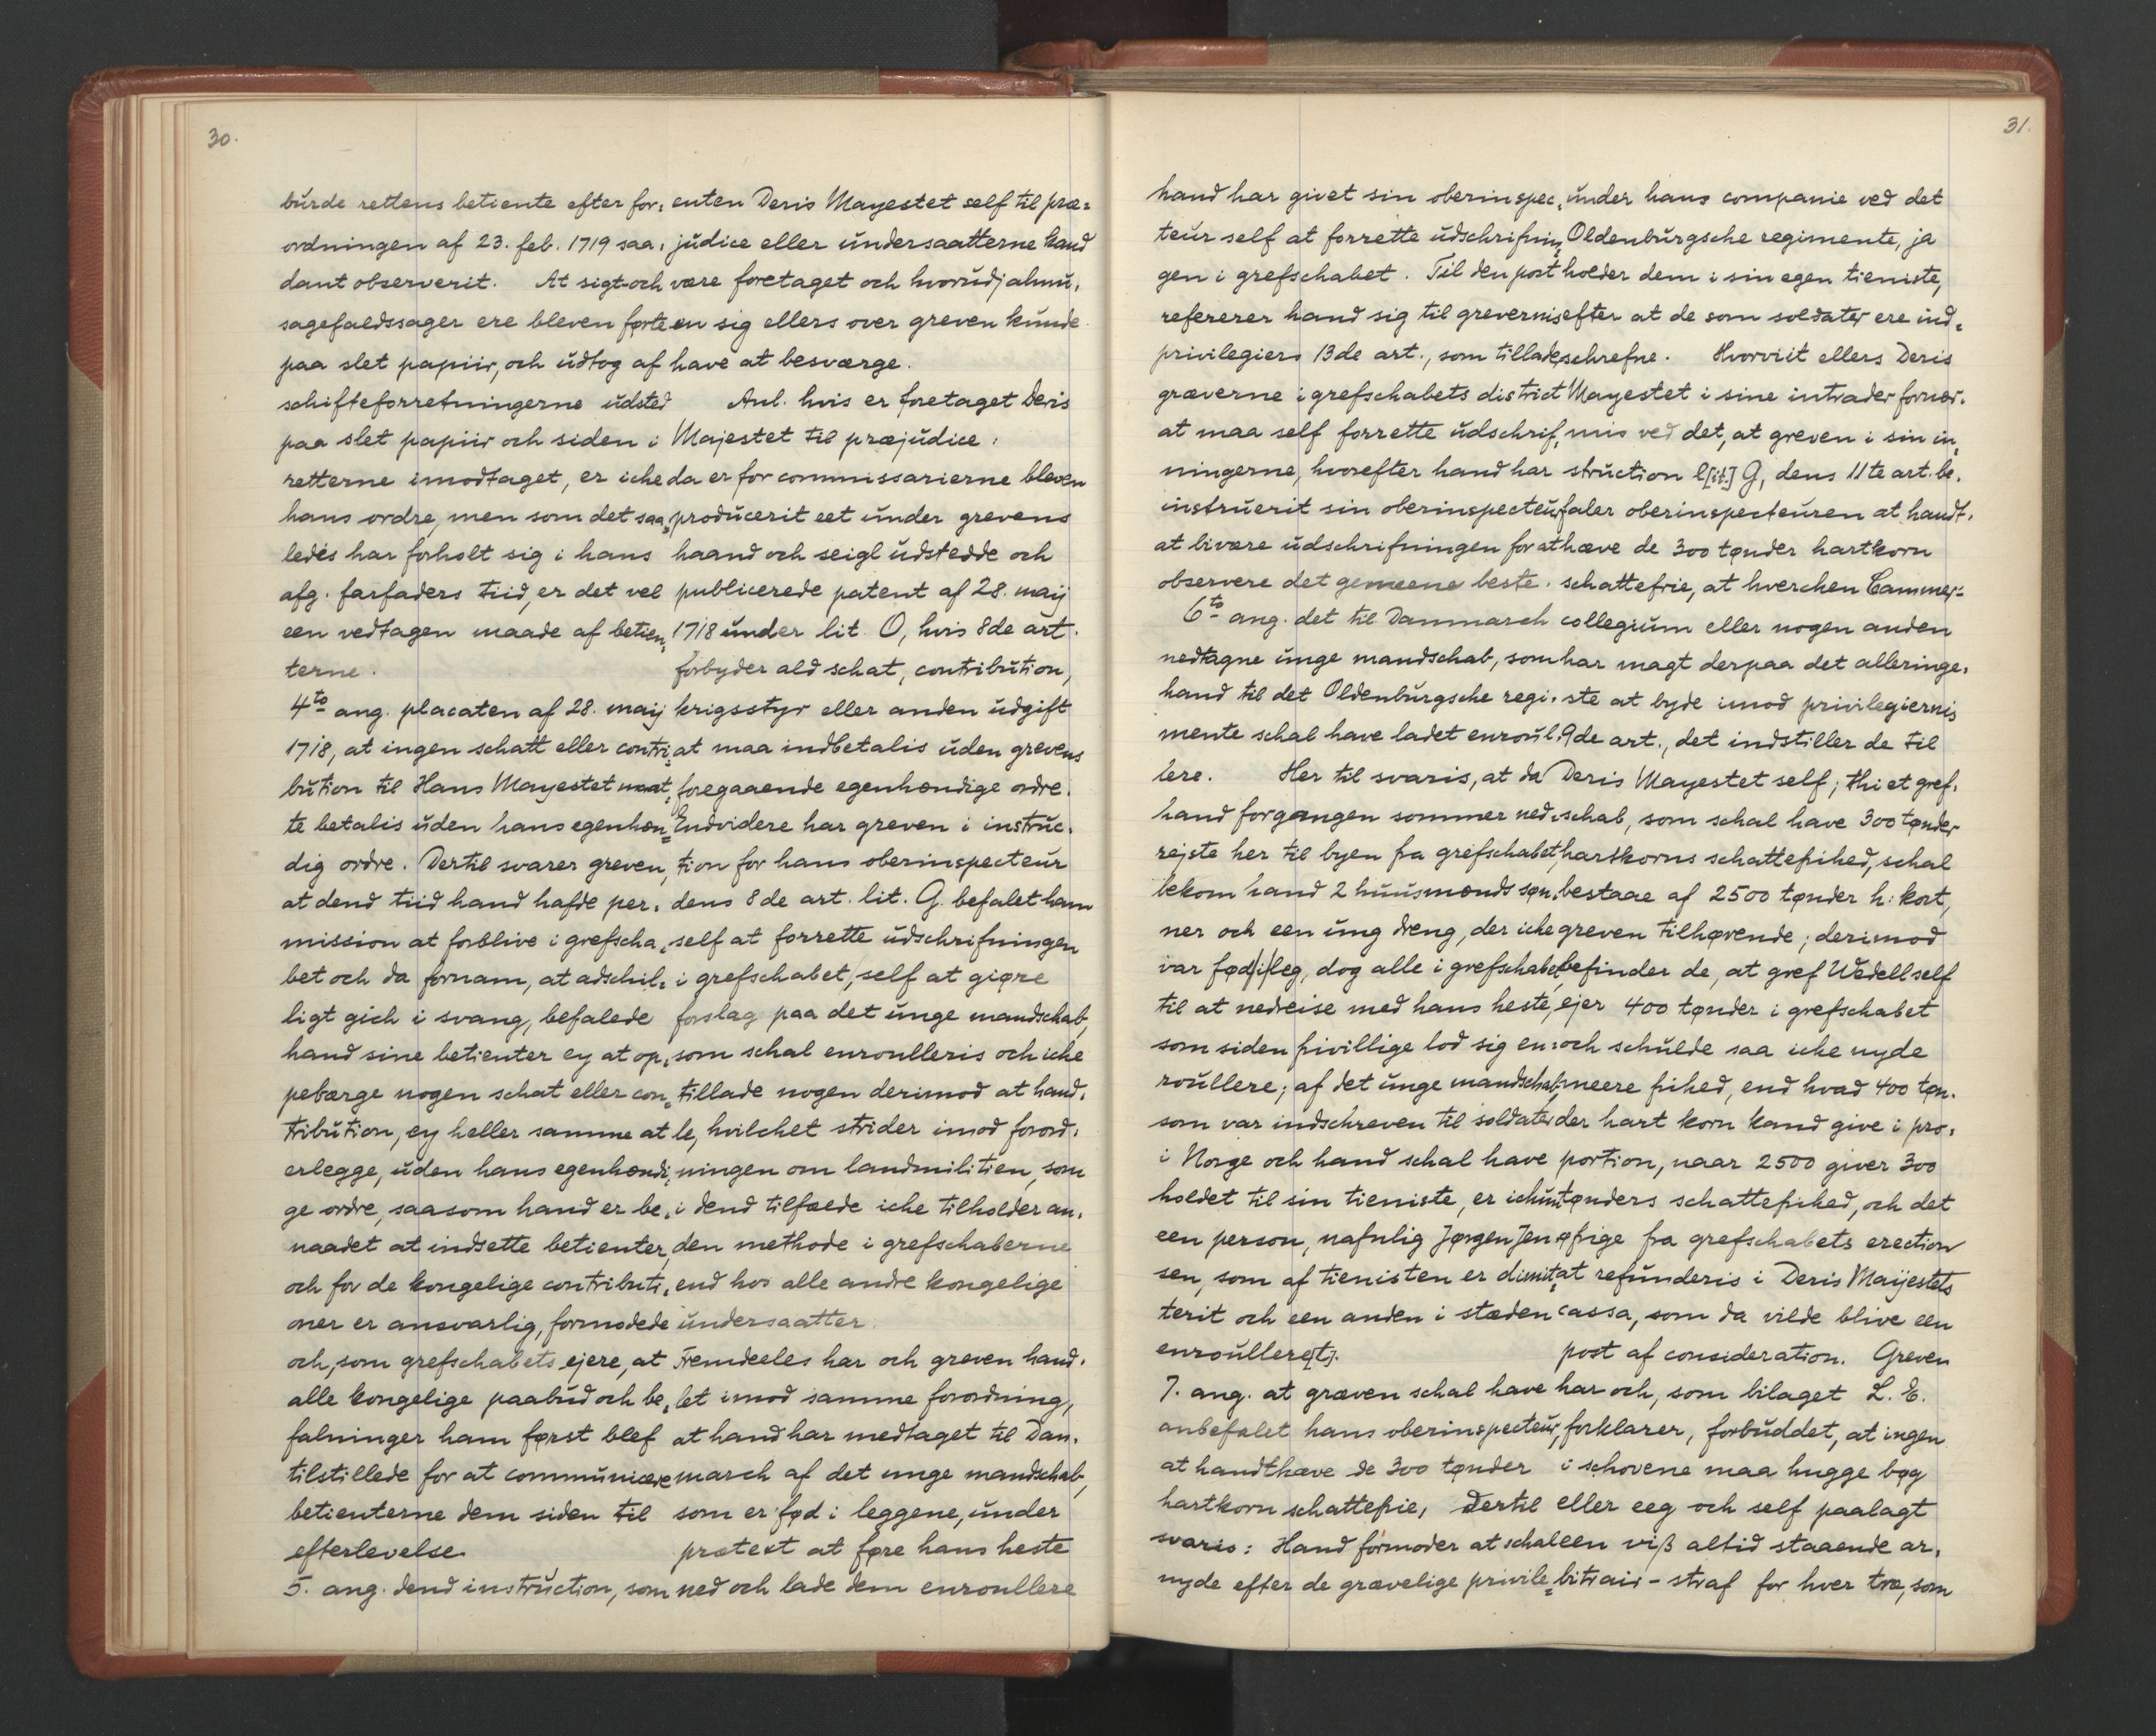 30.
burde rettens betiente efter for-
ordningen af 23. feb. 1719 saa-
dant observerit. At sigt- och
sagefaldssager ere bleven førte
paa slet papiir, och udtog af
schifteforretningerne udsted
paa slet papiir och siden i
retterne imodtaget, er iche
hans ordre, men som det saa-
ledes har forholt sig i hans
afg. farfaders tiid, er det vel
een vedtagen maade af betien-
terne.
4to ang. placaten af 28. maij
1718, at ingen schatt eller contri-
bution til Hans Mayestet maat-
te betalis uden hans egenhæn-
dig ordre. Dertil svarer greven,
at dend tiid hand hafde per-
mission at forblive i grefscha-
bet och da fornam, at adschil-
ligt gich i svang, befalede
hand sine betienter ey at op-
pebærge nogen schat eller con-
tribution, ey heller samme at
erlegge, uden hans egenhændi-
ge ordre, saasom hand er be-
naadet at indsette betienter,
och for de kongelige contributi-
oner er ansvarlig, formodede
och, som grefschabets ejere, at
alle kongelige paabud och be-
falninger ham først blef
tilstillede for at communicere
betienterne dem siden til
efterlevelse.
5. ang. dend instruction, som
enten Deris Mayestet self til præ-
judice eller undersaatterne kand
være foretaget och hvorudj almu-
en sig ellers over greven kunde
have at besværge.
Anl. hvis er foretaget Deris
Majestet til præjudice:
da er for commissarierne bleven
producerit eet under grevens
haand och seigl udstedde och
publicerede patent af 28. maij
1718 under lit. O, hvis 8de art.
forbyder ald schat, contribution,
krigsstyr eller anden udgift
at maa indbetalis uden grevens
foregaaende egenhændige ordre.
Endvidere har greven i instruc-
tion for hans oberinspecteur
dens 8de art. lit. G. befalet ham
self at forrette udschrifningen
i grefschabet, self at giøre
forslag paa det unge mandschab,
som schal enroulleris och iche
tillade nogen derimod at hand-
le, hvilchet strider imod forord-
ningen om landmilitien, som
i dend tilfælde iche tilholder an-
den methode i grefschaberne
end hos alle andre kongelige
undersaatter.
Fremdeeles har och greven hand-
let imod samme forordning,
at hand har medtaget til Dan-
march af det unge mandschab,
som er fød i leggene, under
prætext at føre hans heste
ned och lade dem enroullere
31.
hand har givet sin oberinspec-
teur self at forrette udschrifnin-
gen i grefschabet. Til den post
refererer hand sig til grevernis
privilegiers 13de art., som tillade
græverne i grefschabets district
at maa self forrette udschrif-
ningerne, hvorefter hand har
instruerit sin oberinspecteur
at bivære udschrifningen for at
observere det gemeene beste.
6to ang. det til Dannmarch
nedtagne unge mandschab, som
hand til det Oldenburgsche regi-
mente schal have ladet enroul-
lere. Her til svaris, at da
hand forgangen sommer ned-
rejste her til byen fra grefschabet,
bekom hand 2 huusmænds søn-
ner och een ung dreng, der iche
var fød i leg, dog alle i grefschabet,
til at nedreise med hans heste,
som siden frivillige lod sig en-
roullere; af det unge mandschab,
som var indschreven til soldater
i Norge och hand schal have
holdet til sin tieniste, er ichun
een person, nafnlig Jørgen Jen-
sen, som af tienisten er dimit-
terit och een anden i stæden
enroullere[t].
7. ang. at græven schal have
anbefalet hans oberinspecteur,
at handthæve de 300 tønder
hartkorn schattefrie, Dertil
svaris: Hand formoder at schal
nyde efter de grævelige privile-
under hans companie ved det
Oldenburgsche regimente, ja
holder dem i sin egen tieniste,
efter at de som soldater ere ind-
schrefne. Hvorviit ellers Deris
Mayestet i sine intrader fornær-
mis ved det, at greven i sin in-
struction l[it.] G, dens 11te art. be-
faler oberinspecteuren at handt-
hæve de 300 tønder hartkorn
schattefrie, at hverchen Cammer-
collegium eller nogen anden
har magt derpaa det alleringe-
ste at byde imod privilegiernis
9de art., det indstiller de til
Deris Mayestet self; thi et gref-
schab, som schal have 300 tønder
hartkorns schattefrihed, schal
bestaae af 2500 tønder h: kort,
greven tilhørende; derimod
befinder de, at gref Wedell self
ejer 400 tønder i grefschabet
och schulde saa iche nyde
meere frihed, end hvad 400 tøn-
der hart korn kand give i pro-
portion, naar 2500 giver 300
tønders schattefrihed, och det
øfrige fra grefschabets erection
at refunderis i Deris Maijestets
cassa, som da vilde blive een
post af consideration. Greven
har och, som bilaget L. E.
forklarer, forbuddet, at ingen
i schovene maa hugge bøg
eller eeg och self paalagt
een viß altid staaende ar-
bitrair - straf for hver træ, som